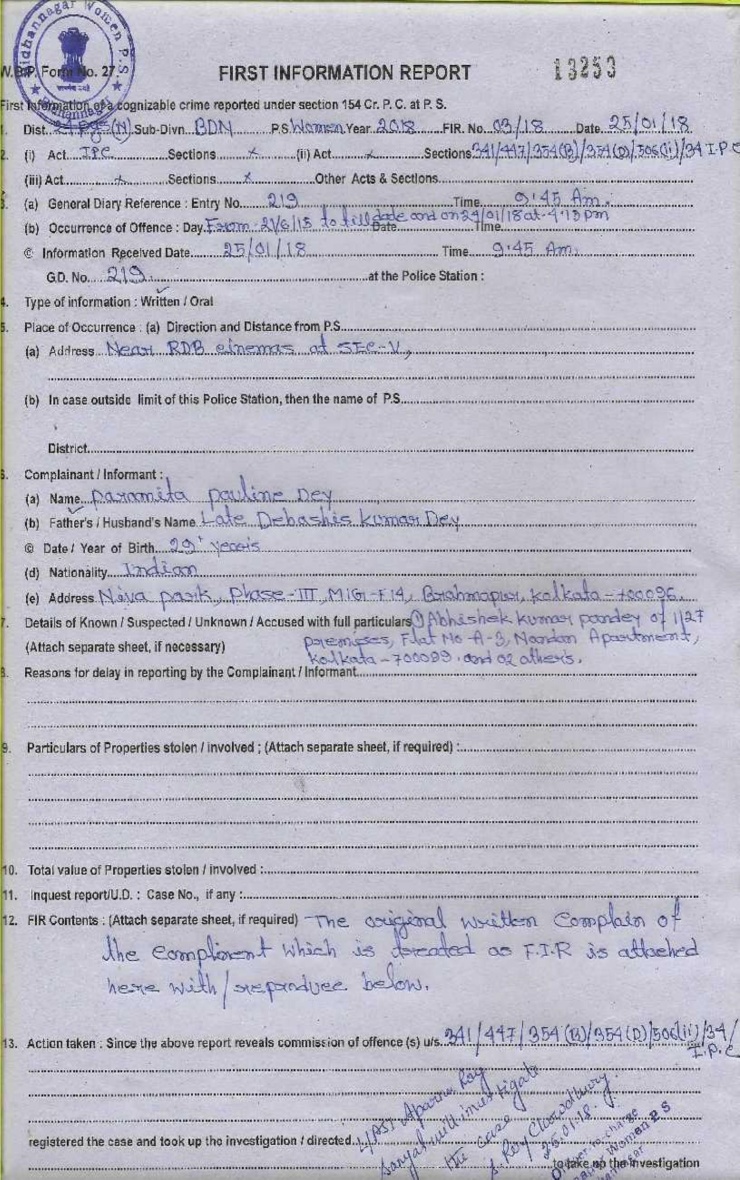 Bidhannagar Women P.S
Bidhannagar
W.B.P. Form No. 27
FIRST INFORMATION REPORT
13253
First Information of a cognizable crime reported under section 154 Cr. P. C. at P. S.
1. Dist. 24 pgs (N) Sub-Divn. BDN P.S. Women Year 2018 FIR. No. 03/18 Date. 25/01/18
2. (i) Act IPC Sections x (ii) Act x Sections 341/447/354(B)/354(D)/506(ii)/34 I.P.C
(iii) Act x Sections x Other Acts & Sections
3. (a) General Diary Reference : Entry No. 219 Time 9:45 Am.
(b) Occurrence of Offence : Day From - 21/6/15 to till date and on 24/01/18 at - 4:15 pm Date Time
© Information Received Date 25/01/18 Time 9:45 Am.
G.D. No. 219 at the Police Station :
4. Type of information : Written / Oral
5. Place of Occurrence : (a) Direction and Distance from P.S.
(a) Address Near RDB cinemas at SEC-V,
(b) In case outside limit of this Police Station, then the name of P.S.
District
6. Complainant / Informant :
(a) Name Paramita pauline Dey
(b) Father's / Husband's Name Late Debashis kumar Dey
© Date / Year of Birth 29 years
(d) Nationality Indian
(e) Address Niva park, Phase-III, MIG-F14, Brahmapur, kolkata - 700096.
7. Details of Known / Suspected / Unknown / Accused with full particulars ① Abhishek kumar pandey of 1/27
(Attach separate sheet, if necessary) premises, Flat No-A-3, Nandan Apartment,
kolkata - 700099. and 02 others.
8. Reasons for delay in reporting by the Complainant / Informant
9. Particulars of Properties stolen / involved ; (Attach separate sheet, if required) :
10. Total value of Properties stolen / involved :
11. Inquest report/U.D. : Case No., if any :
12. FIR Contents : (Attach separate sheet, if required) The original written Complain of
the complinent which is treated as F.I.R is attached
here with/repraduce below.
13. Action taken : Since the above report reveals commission of offence (s) u/s. 341/447/354(B)/354(D)/506(ii)/34/
I.P.C
L/ASI Aparna Roy
Sanyal will investigate
the case
S. Roy Chowdhury.
25.01.18.
Officer to charge
Women P S
registered the case and took up the investigation / directed
to take up the investigation